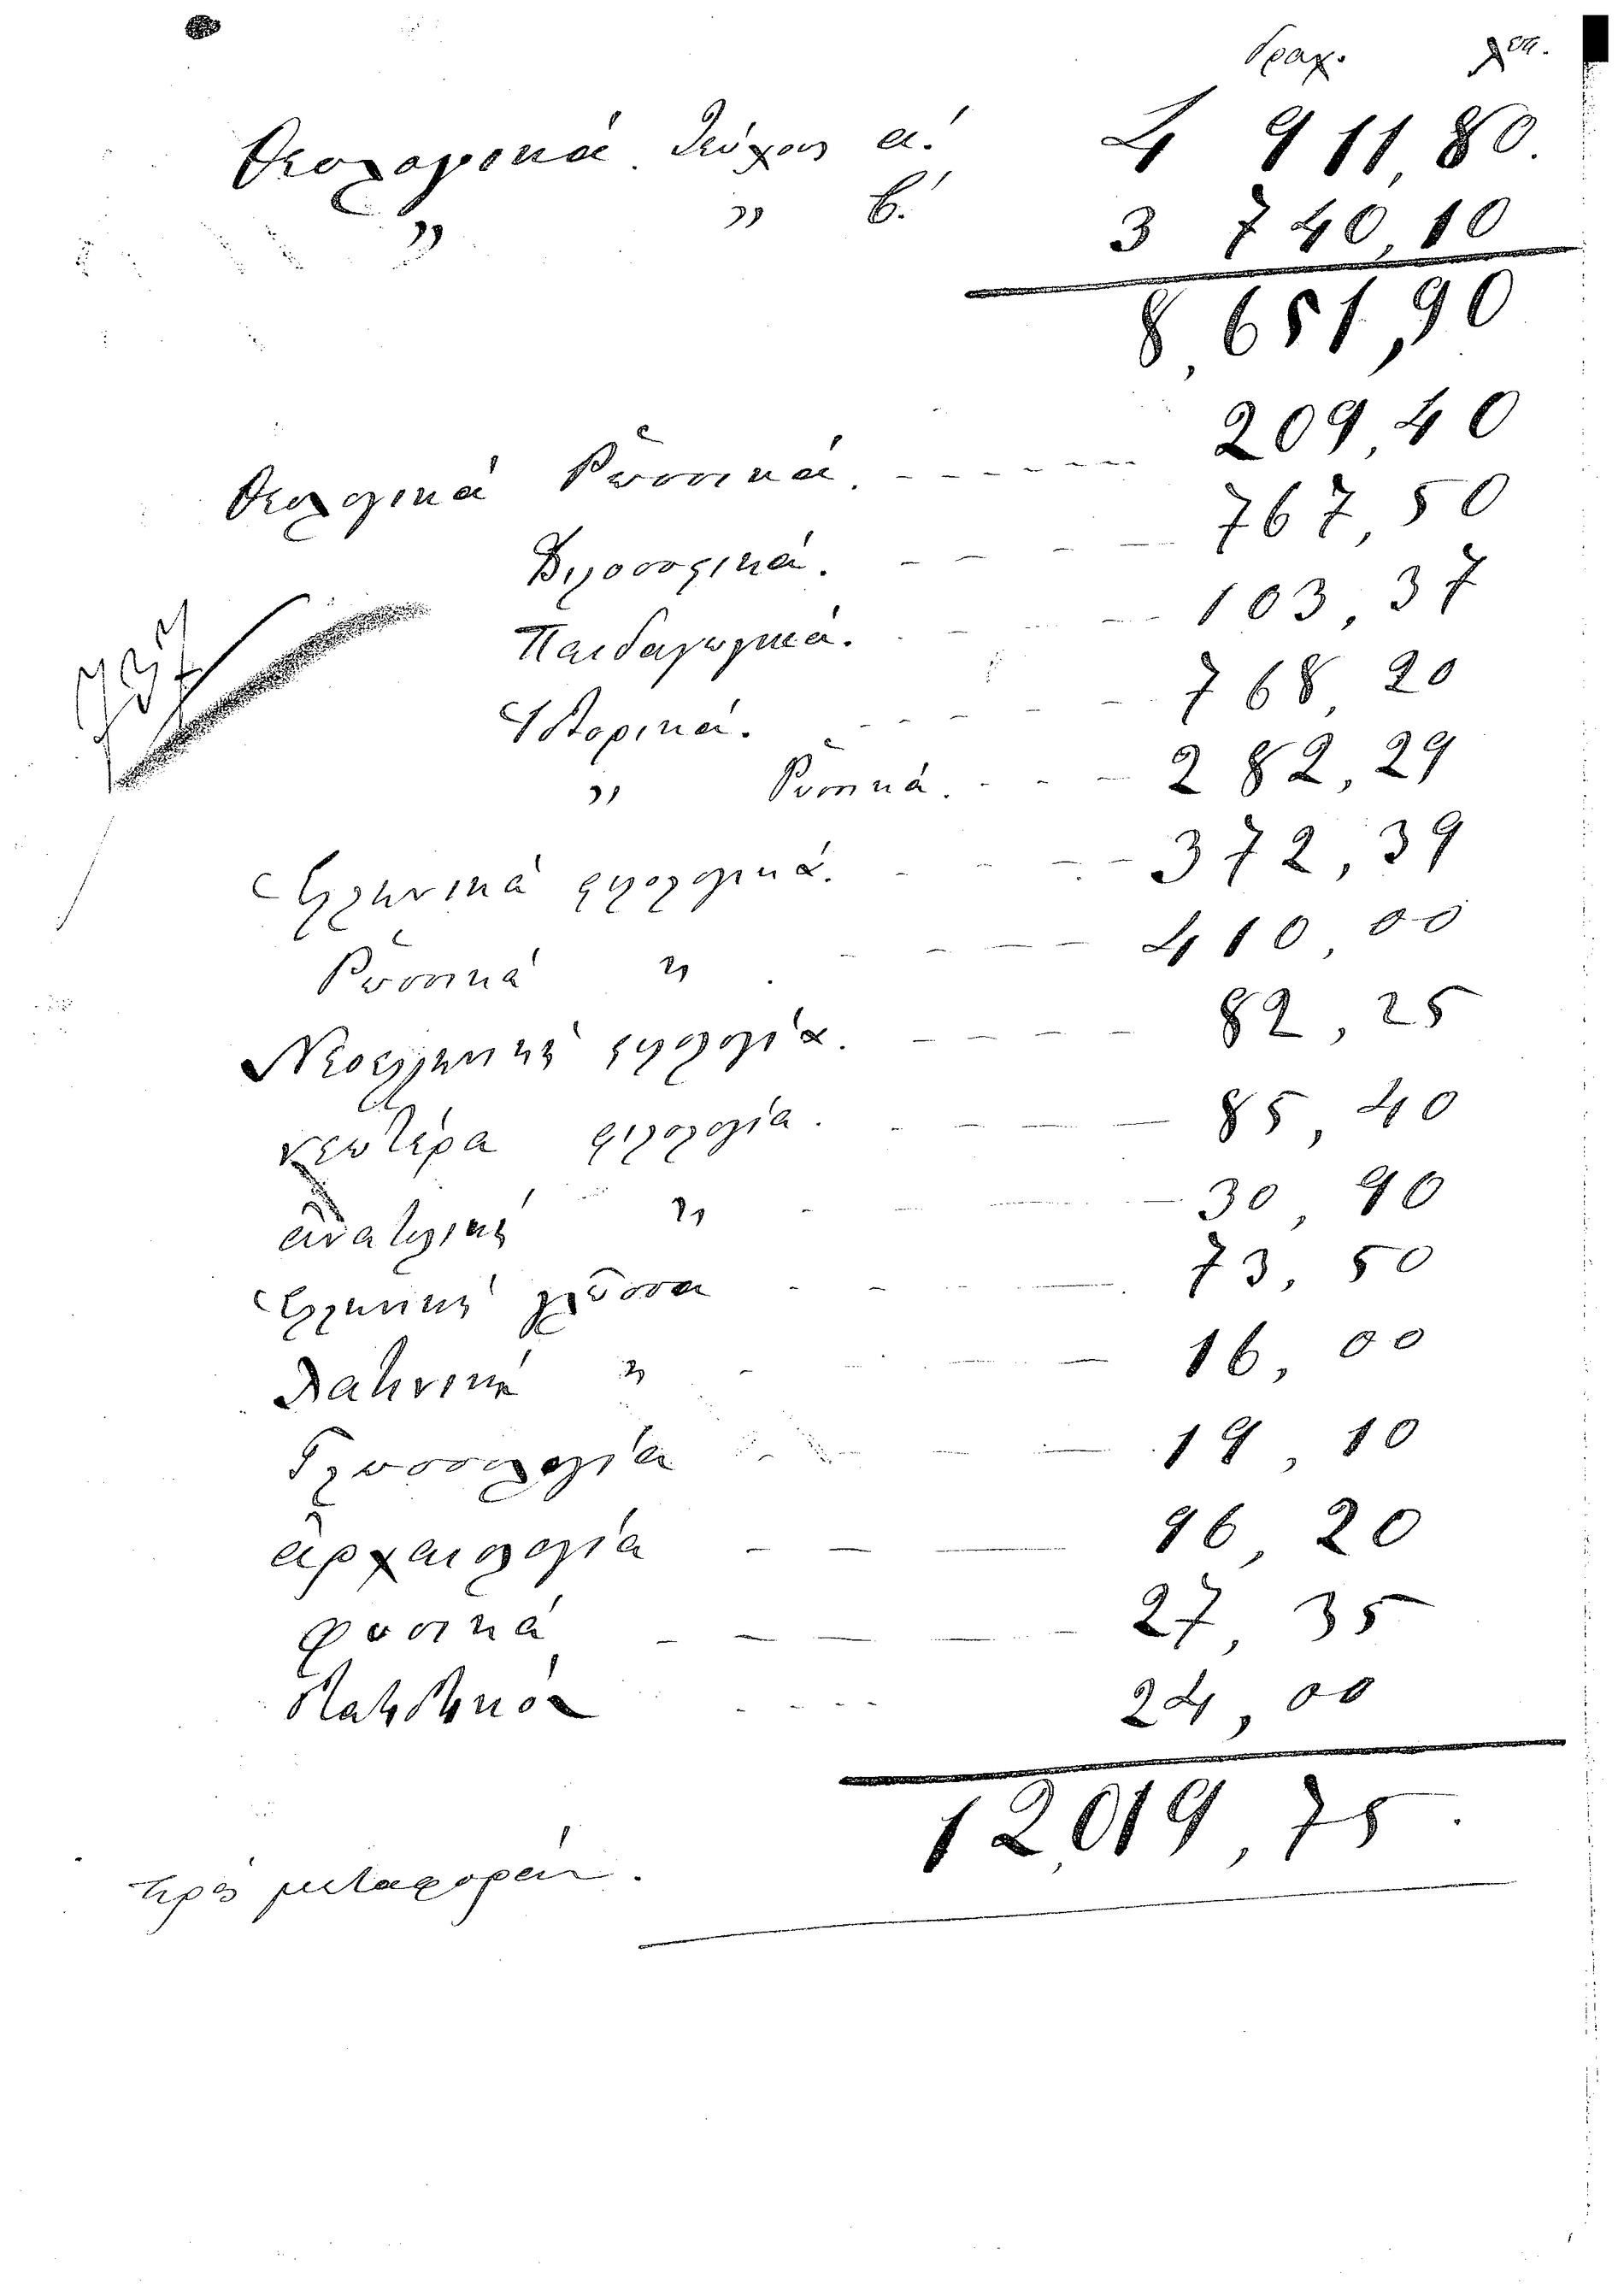 δραχ. λεπ.
Θεολογικά τεύχος α΄. 4 911,80.
„ „ β΄. 3 740,10
8,651,90
Θεολογικά Ῥωσσικά. 209,40
Φιλοσοφικά. 767,50
Παιδαγωγικά. 103,37
Ἱστορικά. 768,20
„ Ῥωσσικά. 282,29
Ἑλληνικά φιλολογικά. 372,39
Ῥωσσικά „ . 410,00
Νεοελληνική φιλολογία. 82,25
νεωτέρα φιλολογία. 85,40
ἀνατολική „ 30,90
Ἑλληνική γλῶσσα 73,50
Λατινική „ 16,00
Γλωσσολογία 19,10
ἀρχαιολογία 96,20
φυσικά 27,35
24,00
12,019,75.
πρός μεταφοράν.
737